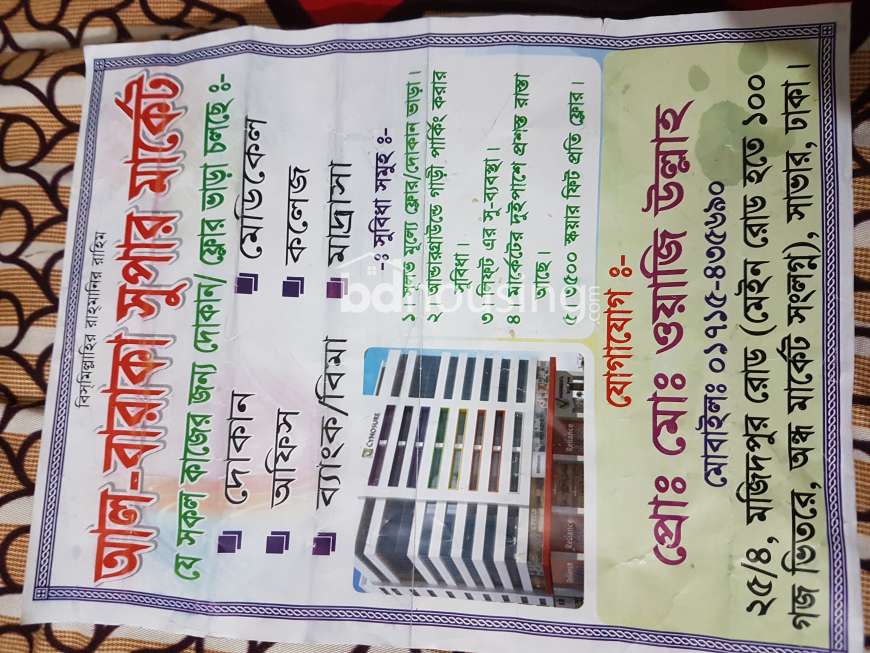 বিস্‌মিল্লাহির রাহ্‌মানির রাহিম
আল-বারাকা সুপার মার্কেট
যে সকল কাজের জন্য দোকান/ ফ্লোর ভাড়া চলছে :-
দোকান
মেডিকেল
অফিস
কলেজ
ব্যাংক/বিমা
মাদ্রাসা
-ঃ সুবিধা সমূহ ঃ-
১ সুলভ মূল্যে ফ্লোর/দোকান ভাড়া।
২ আন্ডারগ্রাউন্ডে গাড়ী পার্কিং করার
সুবিধা।
৩ লিফ্‌ট এর সু-ব্যবস্থা।
৪ মার্কেটের দুইপাশে প্রশস্ত রাস্তা
আছে।
৫ ৫৫০০ স্কয়ার ফিট প্রতি ফ্লোর।
CYNOSURE
Reliance
Reliance
bdhousing.com
যোগাযোগ :-
প্রোঃ মোঃ ওয়াজি উল্লাহ
মোবাইলঃ ০১৭১৫-৪৩৫৬৯০
২৫/৪, মজিদপুর রোড (মেইন রোড হতে ১০০
গজ ভিতরে, অন্ধ মার্কেট সংলগ্ন), সাভার, ঢাকা।